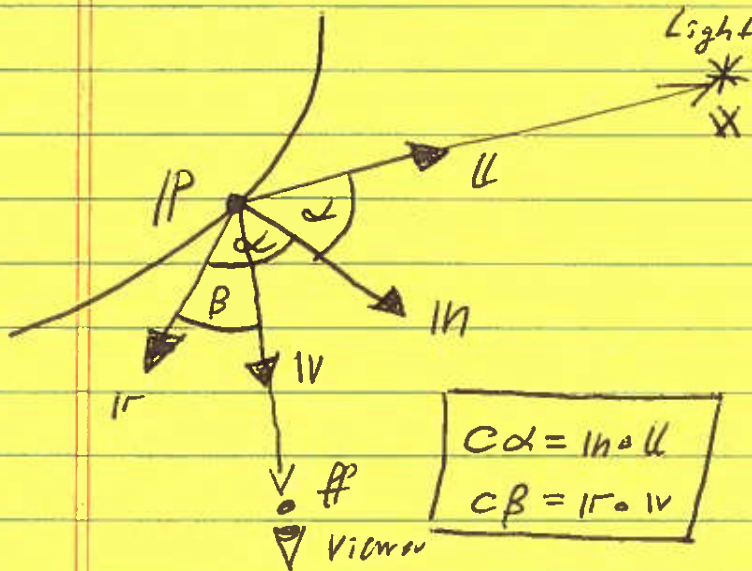 Light
𝕝
ℙ
α
α
β
𝕟
𝕣
𝕧
Viewer
Cα = 𝕟 ∘ 𝕝
Cβ = 𝕣 ∘ 𝕧